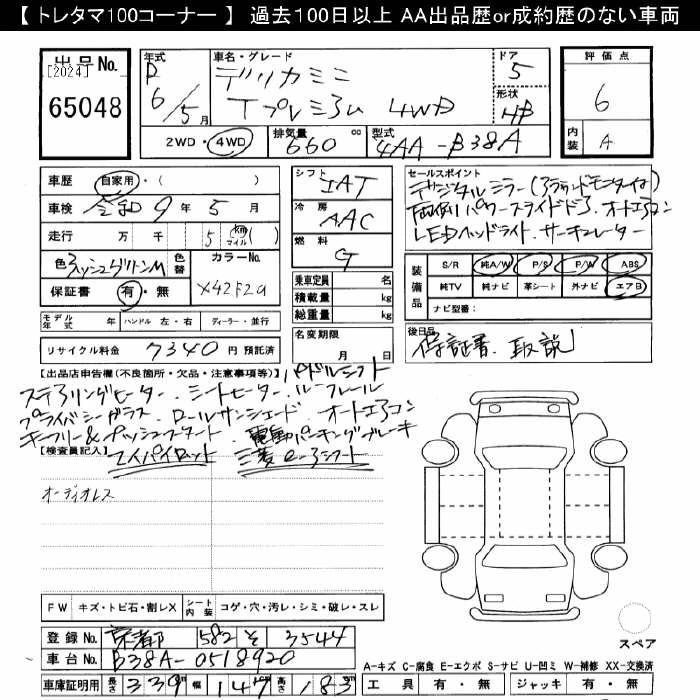 【 トレタマ100コーナー 】 過去100日以上 AA出品歴or成約歴のない車両
出品No. [2024] 65048
年式 R 6/5月
車名・グレード デリカミニ Tプレミアム 4WD
ドア 5
形状 HB
評価点 6
内装 A
2WD・4WD 排気量 660 cc 型式 4AA-B38A
車歴 自家用・( )
車検 令和 9 年 5 月
走行 万 千 5 km マイル ( )
色 アッシュグリーンM 色替 カラーNo. X42F29
保証書 有・無
シフト IAT
冷房 AAC
燃料 G
乗車定員 名
積載量 kg
総重量 kg
モデル年式 年 ハンドル 左・右 ディーラー・並行
名変期限 月 日
リサイクル料金 7340 円 預託済
セールスポイント
デジタルミラー(アラウンドモニター付)
両側パワースライドドア.オートエアコン
LEDヘッドライト.サーキュレーター
装備品 S/R 純A/W P/S P/W ABS
純TV 純ナビ 革シート 外ナビ エアB
ナビ型番:
後日品 保証書.取説
【出品店申告欄(不良箇所・欠品・注意事項等)】 パドルシフト
ステアリングヒーター.シートヒーター.ルーフレール
プライバシーガラス.ロールサンシェード.オートエアコン
キーフリー&プッシュスタート.電動パーキングブレーキ
【検査員記入】 マイパイロット 三菱e-アシスト
オーディオレス
FW キズ・トビ石・割レX シート内装 コゲ・穴・汚レ・シミ・破レ・スレ
登録No. 京都 582 そ 3544
車台No. B38A-0518920
車庫証明用 長さ 339 幅 147 高さ 183
スペア
A-キズ C-腐食 E-エクボ S-サビ U-凹ミ W-補修 XX-交換済
工具 有・無 ジャッキ 有・無